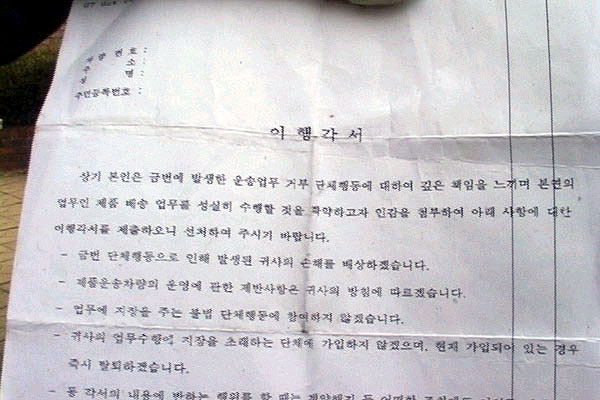 차량번호 :
주 소 :
성 명 :
주민등록번호 :
이 행 각 서
상기 본인은 금번에 발생한 운송업무 거부 단체행동에 대하여 깊은 책임을 느끼며 본연의
업무인 제품 배송 업무를 성실히 수행할 것을 확약하고자 인감을 첨부하여 아래 사항에 대한
이행각서를 제출하오니 선처하여 주시기 바랍니다.
- 금번 단체행동으로 인해 발생된 귀사의 손해를 배상하겠습니다.
- 제품운송차량의 운영에 관한 제반사항은 귀사의 방침에 따르겠습니다.
- 업무에 지장을 주는 불법 단체행동에 참여하지 않겠습니다.
- 귀사의 업무수행에 지장을 초래하는 단체에 가입하지 않겠으며, 현재 가입되어 있는 경우
즉시 탈퇴하겠습니다.
- 동 각서의 내용에 반하는 행위를 할 때는 계약해지 등 어떠한